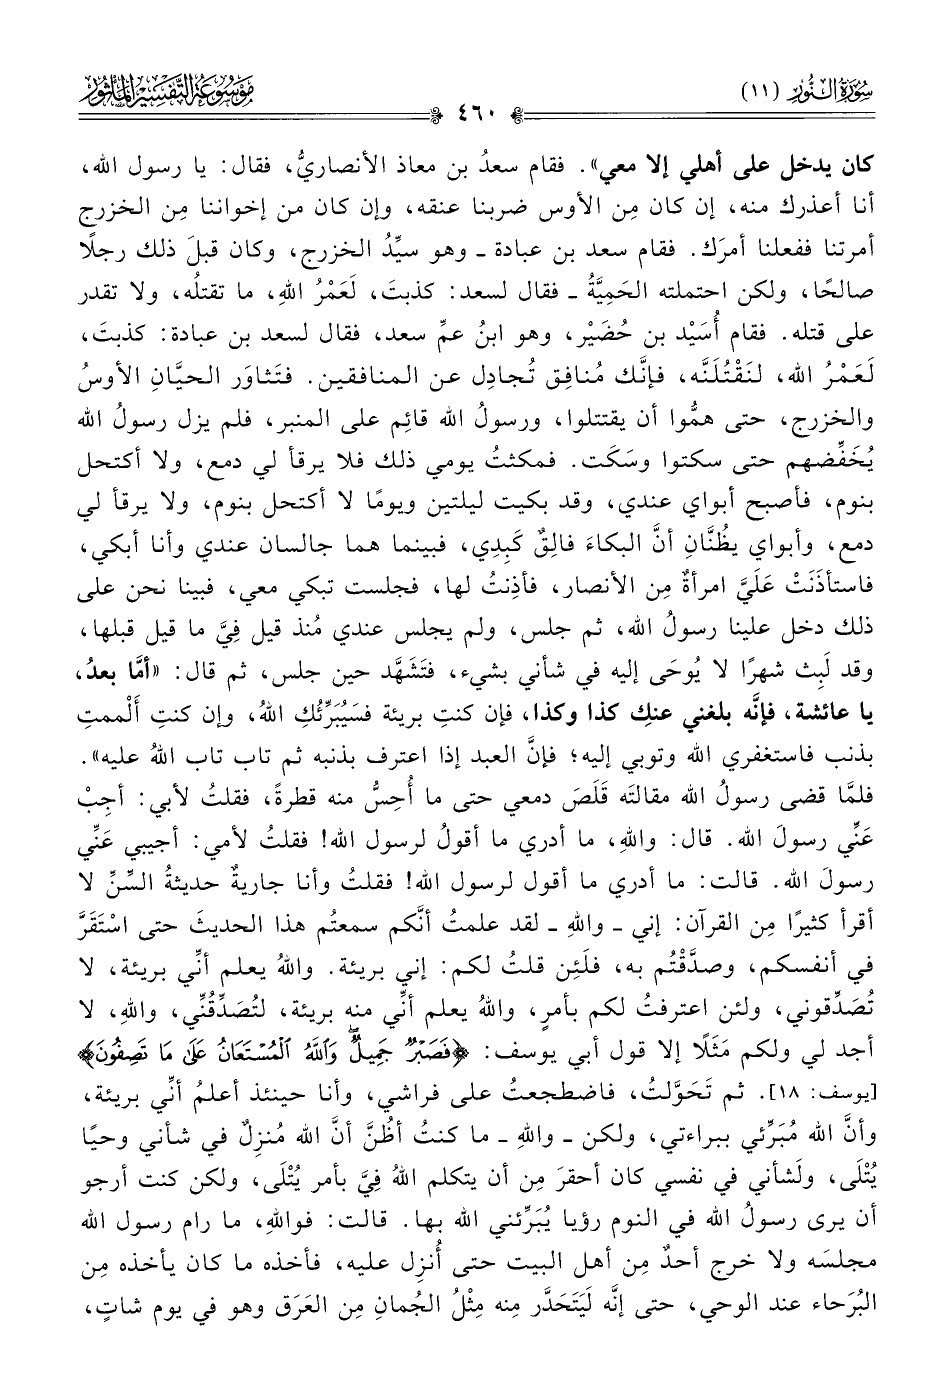 سُورَةُ النُّورِ (١١)
٤٦٠
مَوْسُوعَةُ التَّفْسِيرِ المَأْثُورِ
كان يدخل على أهلي إلا معي». فقام سعدُ بن معاذ الأنصاريُّ، فقال: يا رسول الله،
أنا أعذرك منه، إن كان مِن الأوس ضربنا عنقه، وإن كان من إخواننا مِن الخزرج
أمرتنا ففعلنا أمرَك. فقام سعد بن عبادة ـ وهو سيِّدُ الخزرج، وكان قبلَ ذلك رجلًا
صالحًا، ولكن احتملته الحَمِيَّةُ ـ فقال لسعد: كذبتَ، لَعَمْرُ اللهِ، ما تقتلُه، ولا تقدر
على قتله. فقام أُسَيْد بن حُضَيْر، وهو ابنُ عمِّ سعد، فقال لسعد بن عبادة: كذبتَ،
لَعَمْرُ الله، لنَقْتُلَنَّه، فإنَّك مُنافِق تُجادِل عن المنافقين. فتَثاوَر الحيَّانِ الأوسُ
والخزرج، حتى همُّوا أن يقتتلوا، ورسولُ الله قائِم على المنبر، فلم يزل رسولُ الله
يُخَفِّضهم حتى سكتوا وسَكَت. فمكثتُ يومي ذلك فلا يرقأ لي دمع، ولا أكتحل
بنوم، فأصبح أبواي عندي، وقد بكيت ليلتين ويومًا لا أكتحل بنوم، ولا يرقأ لي
دمع، وأبواي يظُنَّانِ أنَّ البكاءَ فالِقٌ كَبِدِي، فبينما هما جالسان عندي وأنا أبكي،
فاستأذَنَتْ عَلَيَّ امرأةٌ مِن الأنصار، فأذِنتُ لها، فجلست تبكي معي، فبينا نحن على
ذلك دخل علينا رسولُ الله، ثم جلس، ولم يجلس عندي مُنذ قيل فِيَّ ما قيل قبلها،
وقد لَبِث شهرًا لا يُوحَى إليه في شأني بشيء، فتَشَهَّد حين جلس، ثم قال: «أمَّا بعدُ،
يا عائشة، فإنَّه بلغني عنكِ كذا وكذا، فإن كنتِ بريئة فسَيُبَرِّئُكِ اللهُ، وإن كنتِ أَلْممتِ
بذنب فاستغفري الله وتوبي إليه؛ فإنَّ العبد إذا اعترف بذنبه ثم تاب تاب اللهُ عليه».
فلمَّا قضى رسولُ الله مقالتَه قَلَصَ دمعي حتى ما أُحِسُّ منه قطرةً، فقلتُ لأبي: أجِبْ
عَنِّي رسولَ الله. قال: واللهِ، ما أدري ما أقولُ لرسول الله! فقلتُ لأمي: أجيبي عَنِّي
رسولَ الله. قالت: ما أدري ما أقول لرسول الله! فقلتُ وأنا جاريةٌ حديثةُ السِّنِّ لا
أقرأ كثيرًا مِن القرآن: إني ـ واللهِ ـ لقد علمتُ أنَّكم سمعتم هذا الحديثَ حتى اسْتَقَرَّ
في أنفسكم، وصدَّقْتُم به، فلَئِن قلتُ لكم: إني بريئة. واللهُ يعلم أنِّي بريئة، لا
تُصَدِّقوني، ولئن اعترفتُ لكم بأمرٍ، واللهُ يعلم أنِّي منه بريئة، لتُصَدِّقُنِّي، واللهِ، لا
أجد لي ولكم مَثَلًا إلا قول أبي يوسف: ﴿فَصَبْرٌ جَمِيلٌ ۖ وَاللَّهُ الْمُسْتَعَانُ عَلَىٰ مَا تَصِفُونَ﴾
[يوسف: ١٨]. ثم تَحَوَّلتُ، فاضطجعتُ على فراشي، وأنا حينئذ أعلمُ أنِّي بريئة،
وأنَّ الله مُبَرِّئي ببراءتي، ولكن ـ واللهِ ـ ما كنتُ أظُنَّ أنَّ الله مُنزِلٌ في شأني وحيًا
يُتْلَى، ولَشأني في نفسي كان أحقرَ مِن أن يتكلم اللهُ فِيَّ بأمر يُتْلَى، ولكن كنت أرجو
أن يرى رسولُ الله في النوم رؤيا يُبَرِّئني الله بها. قالت: فواللهِ، ما رام رسول الله
مجلسَه ولا خرج أحدٌ مِن أهل البيت حتى أُنزِل عليه، فأخذه ما كان يأخذه مِن
البُرَحاء عند الوحي، حتى إنَّه لَيَتَحَدَّر منه مِثْلُ الجُمانِ مِن العَرَق وهو في يوم شاتٍ،